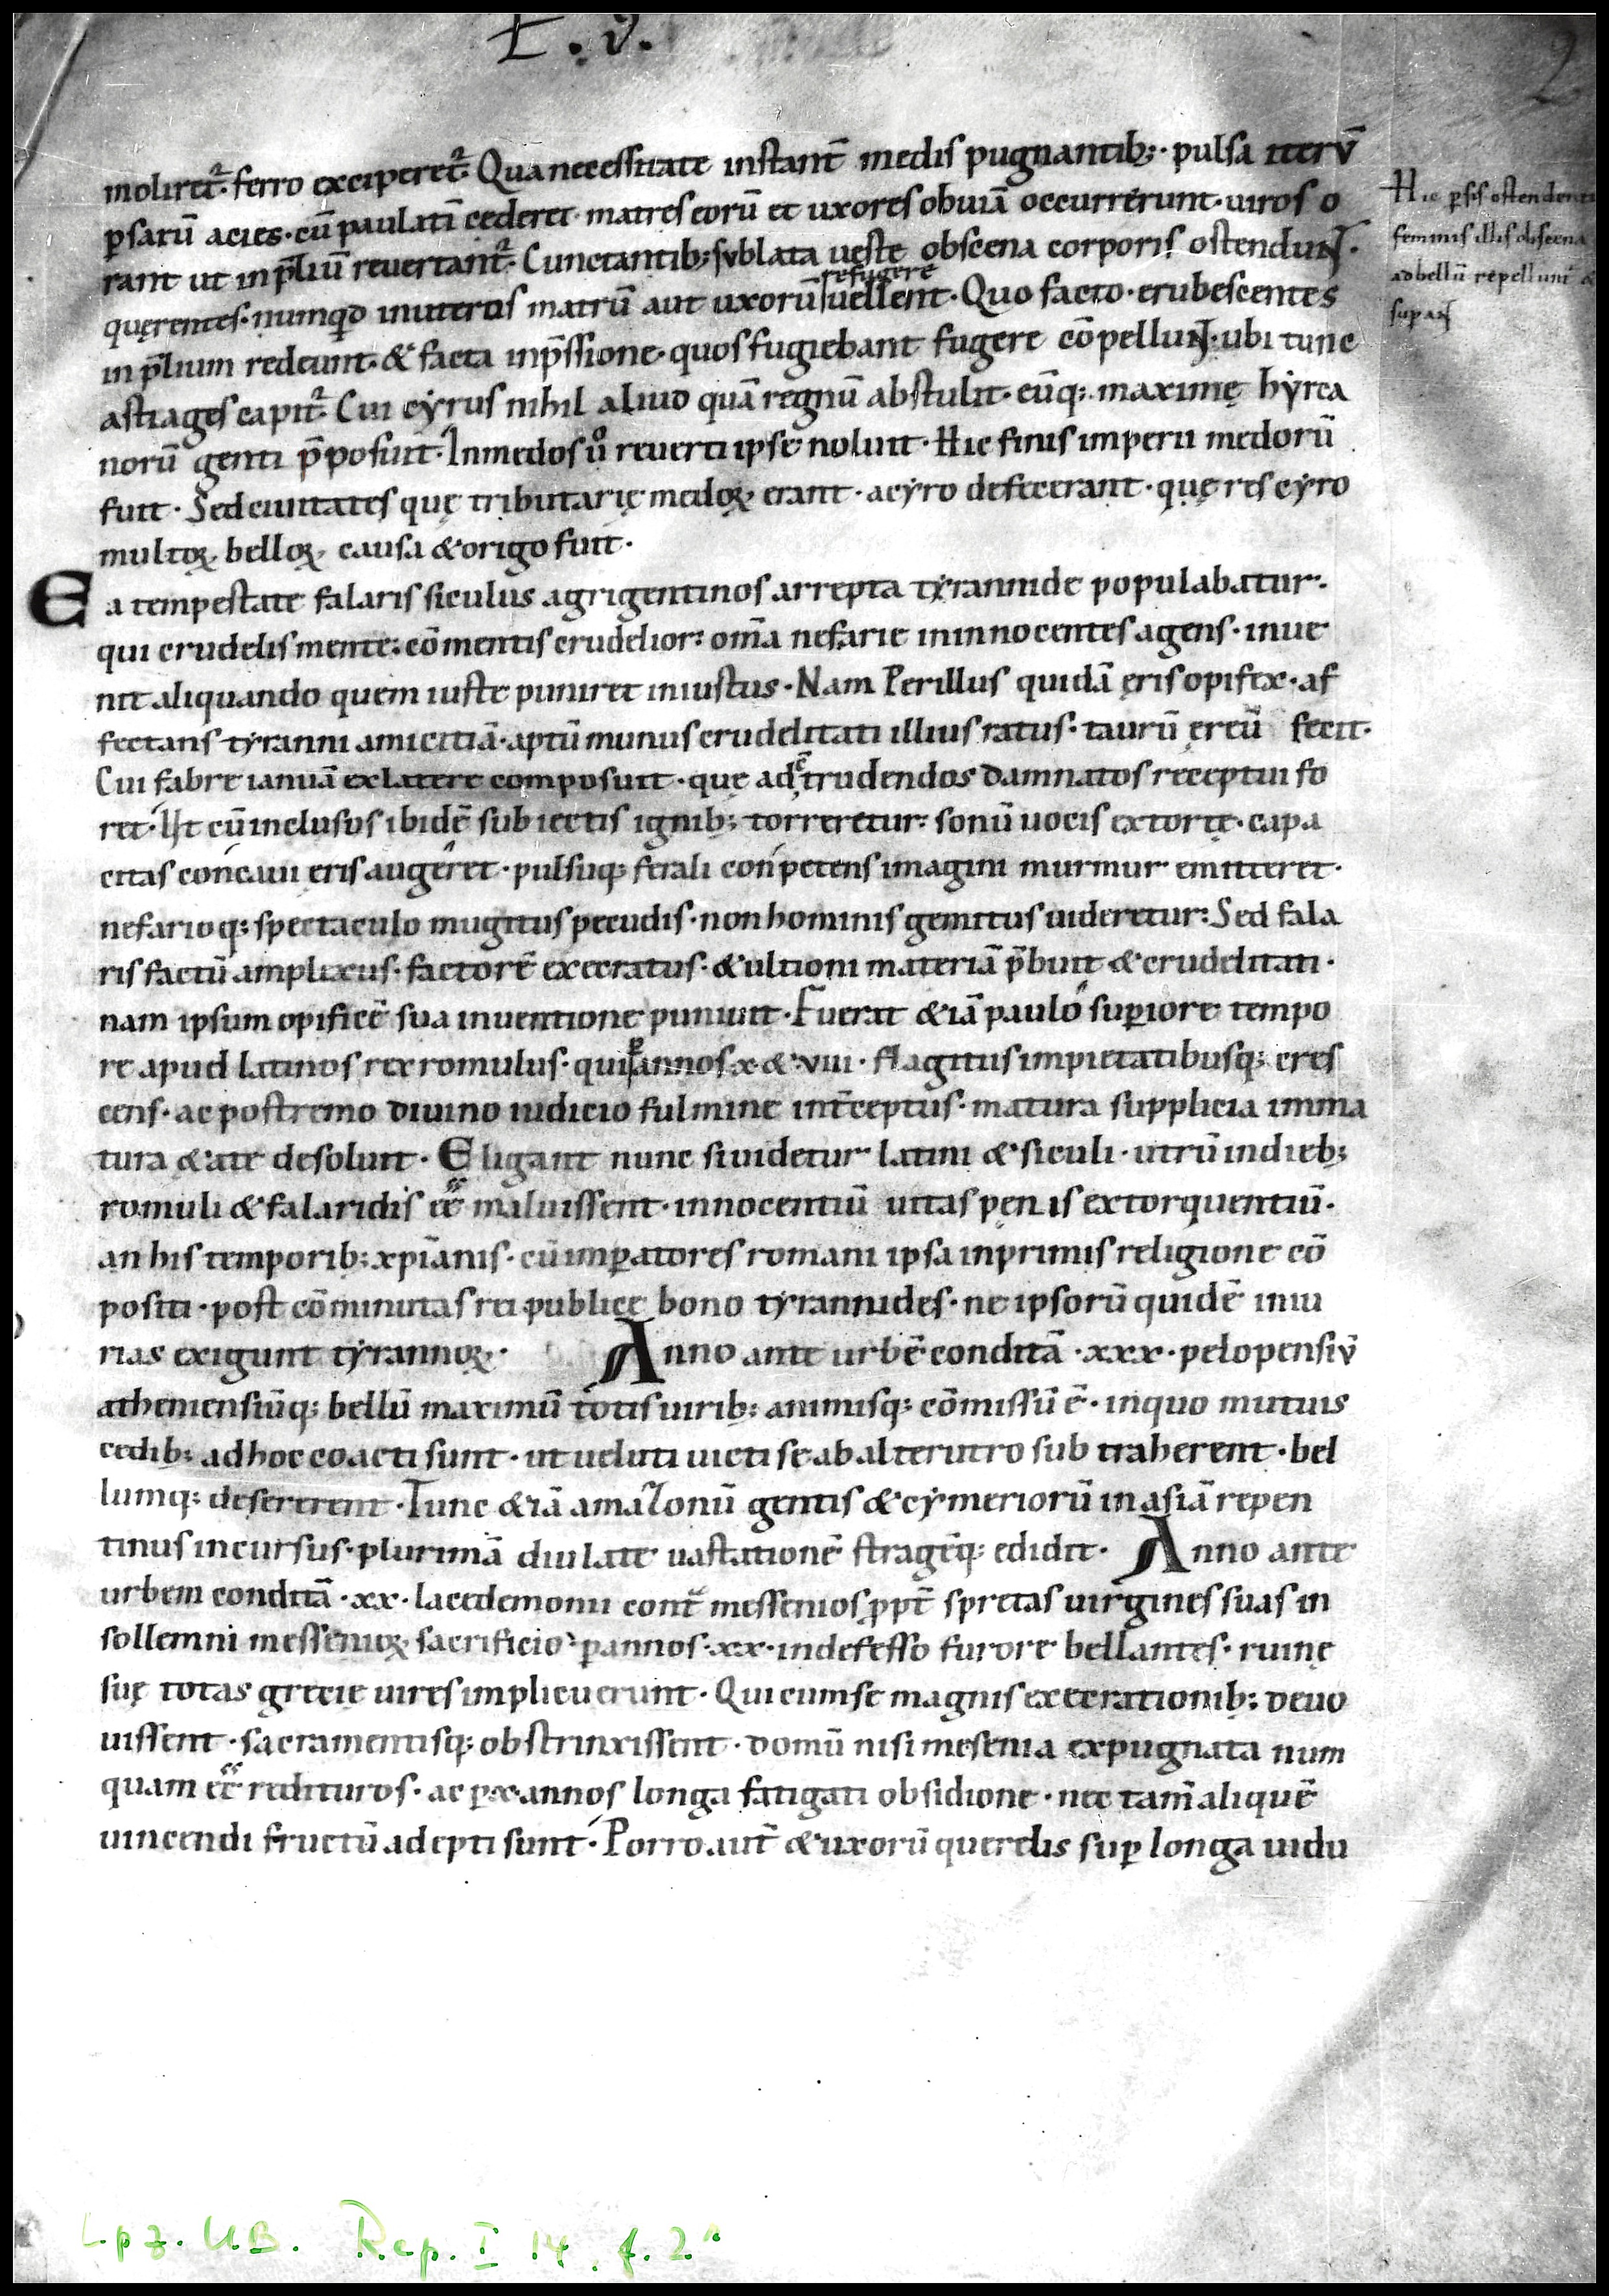 E . v̄.
2
moliret᷑· ferro exciperet᷑· Qua necessitate instant̄ medis pugnantib;· pulsa iterv̄
ꝑsarū acies· cū paulatī cederet· matres eorū et uxores obuiā occurrerunt· uiros o
rant ut in p̄liū reuertant᷑· Cunctantib; sublata ueste obscena corporis ostendunt·
refugere
quęrentes· numqd in uteros matrū aut uxorū uellent· Quo facto· erubescentes
in p̄lium redeunt· & facta inp̄ssione· quos fugiebant fugere cōpellunt· ubi tunc
astiages capit᷑· Cui cyrus nihil aliud quā regnū abstulit· eūq; maximę hyrca
norū genti p̄posuit· In medos ůo reuerti ipse noluit· Hic finis imperii medorū
fuit· Sed ciuitates quę tributarię medoꝝ erant· a cyro defecerant· quę res cyro
multoꝝ belloꝝ causa & origo fuit·
Ea tempestate falaris siculus agrigentinos arrepta tyrannide populabatur·
qui crudelis mente· cōmentis crudelior· om̄a nefarie in innocentes agens· inue
nit aliquando quem iuste puniret iniustus· Nam Perillus quidā ęris opifex· af
fectans tyranni amicitiā· aptū munus crudelitati illius ratus· taurū ęreū fecit·
Cui fabre ianuā ex latere composuit· que ad c̨trudendos damnatos receptui fo
ret· Ut cū inclusus ibidē subiectis ignib; torreretur· sonū uocis extortę· capa
citas concaui ęris augeret· pulsuq; ferali conpetens imagini murmur emitteret·
nefarioq; spectaculo mugitus pecudis· non hominis gemitus uideretur· Sed fala
ris factū amplexus· factorē execratus· & ultioni materiā p̄buit & crudelitati·
nam ipsum opificē sua inuentione puniuit· Fuerat &iā paulo suꝑiore tempo
re apud latinos rex romulus· qui ꝑ annos x·&·viii· flagitiis impietatibusq; cres
cens· ac postremo diuino iudicio fulmine int̄ceptus· matura supplicia imma
tura &ate desoluit· Eligant nunc si uidetur latini & siculi· utrū in dieb;
romuli & falaridis eē maluissent· innocentiū uitas penis extorquentiū·
an his temporib; xp̄ianis· cū imꝑatores romani ipsa inprimis religione cō
positi· post cōminutas rei publice bono tyrannides· ne ipsorū quidē iniu
rias exigunt tyrannoꝝ· Anno ante urbē conditā ·xxx· pelopensiv̄
atheniensiūq; bellū maximū totis uirib; animisq; cōmissū ē· in quo mutuis
cedib; ad hoc coacti sunt· ut ueluti uicti se ab alterutro subtraherent· bel
lumq; desererent· Tunc &iā amazonū gentis & cymeriorū in asiā repen
tinus incursus· plurimā diu late uastationē stragēq; edidit· Anno ante
urbem conditā ·xx· lacedemonii cont̄ messenios ꝓpt̄ spretas uirgines suas in
sollemni messenioꝝ sacrificio· ꝑ annos ·xx· indefesso furore bellantes· ruinę
suę totas grecie uires implicuerunt· Qui cum se magnis execrationib; deuo
uissent· sacramentisq; obstrinxissent· domū nisi mesenia expugnata num
quam eē redituros· ac ꝑ·x·annos longa fatigati obsidione· nec tam̄ aliquē
uincendi fructū adepti sunt· Porro aut̄ & uxorū querelis suꝑ longa uidu
Hic ꝑsis ostendent
femmis illis obscena
ad bellū repellunt̄ &
suꝑant
Lpz. UB. Rep. I 14. f. 2ʳ